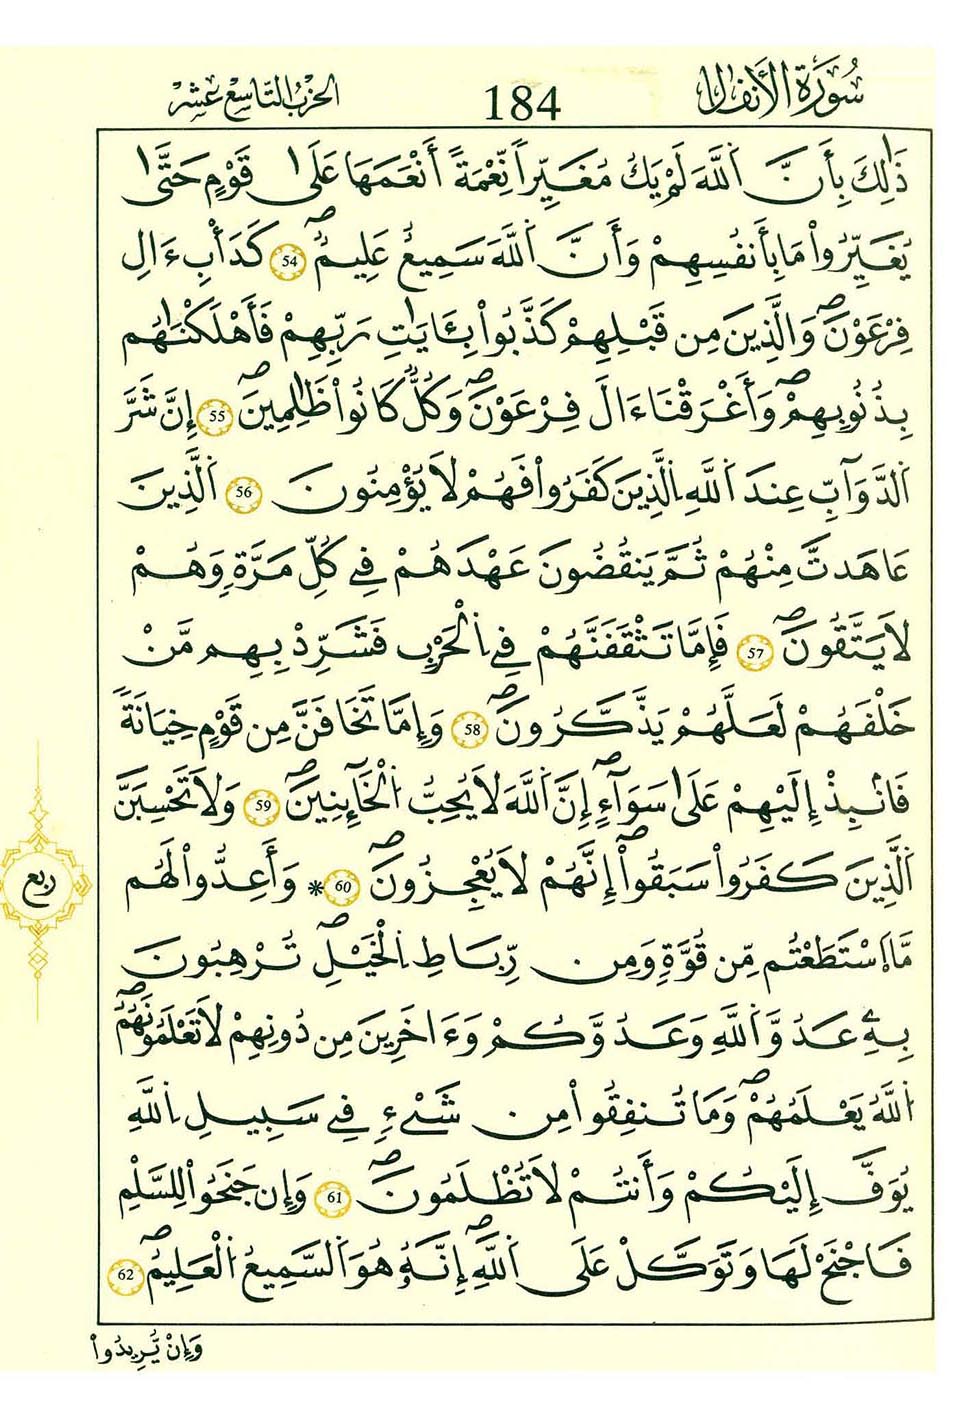 سُورَةُ الأَنفَالِ 184 الحِزْبُ التَّاسِعُ عَشَرَ
ذَٰلِكَ بِأَنَّ اَللَّهَ لَمْ يَكُ مُغَيِّراٗ نِّعْمَةً أَنْعَمَهَا عَلَىٰ قَوْمٍ حَتَّىٰ
يُغَيِّرُواْ مَا بِأَنفُسِهِمْ وَأَنَّ اَللَّهَ سَمِيعٌ عَلِيمٌ 54 كَدَأْبِ ءَالِ
فِرْعَوْنَ وَالَّذِينَ مِن قَبْلِهِمْ كَذَّبُواْ بِـَٔايَٰتِ رَبِّهِمْ فَأَهْلَكْنَٰهُم
بِذُنُوبِهِمْ وَأَغْرَقْنَا ءَالَ فِرْعَوْنَ وَكُلٌّ كَانُواْ ظَٰلِمِينَ 55 إِنَّ شَرَّ
اَلدَّوَآبِّ عِندَ اَللَّهِ اِلَّذِينَ كَفَرُواْ فَهُمْ لَا يُؤْمِنُونَ 56 اَلَّذِينَ
عَاهَدتَّ مِنْهُمْ ثُمَّ يَنقُضُونَ عَهْدَهُمْ فِے كُلِّ مَرَّةٍ وَهُمْ
لَا يَتَّقُونَ 57 فَإِمَّا تَثْقَفَنَّهُمْ فِے اِلْحَرْبِ فَشَرِّدْ بِهِم مَّنْ
خَلْفَهُمْ لَعَلَّهُمْ يَذَّكَّرُونَ 58 وَإِمَّا تَخَافَنَّ مِن قَوْمٍ خِيَانَةٗ
فَانۢبِذْ إِلَيْهِمْ عَلَىٰ سَوَآءٍ إِنَّ اَللَّهَ لَا يُحِبُّ اُلْخَآئِنِينَ 59 وَلَا تَحْسِبَنَّ
اَلَّذِينَ كَفَرُواْ سَبَقُواْ إِنَّهُمْ لَا يُعْجِزُونَ 60 * وَأَعِدُّواْ لَهُم
ربع
مَّا اَسْتَطَعْتُم مِّن قُوَّةٍ وَمِن رِّبَاطِ اِلْخَيْلِ تُرْهِبُونَ
بِهِۦ عَدُوَّ اَللَّهِ وَعَدُوَّكُمْ وَءَاخَرِينَ مِن دُونِهِمْ لَا تَعْلَمُونَهُمُ
اُللَّهُ يَعْلَمُهُمْ وَمَا تُنفِقُواْ مِن شَےْءٖ فِے سَبِيلِ اِللَّهِ
يُوَفَّ إِلَيْكُمْ وَأَنتُمْ لَا تُظْلَمُونَ 61 وَإِن جَنَحُواْ لِلسَّلْمِ
فَاجْنَحْ لَهَا وَتَوَكَّلْ عَلَى اَللَّهِ إِنَّهُۥ هُوَ اَلسَّمِيعُ اُلْعَلِيمُ 62
وَإِنْ يُّرِيدُواْ